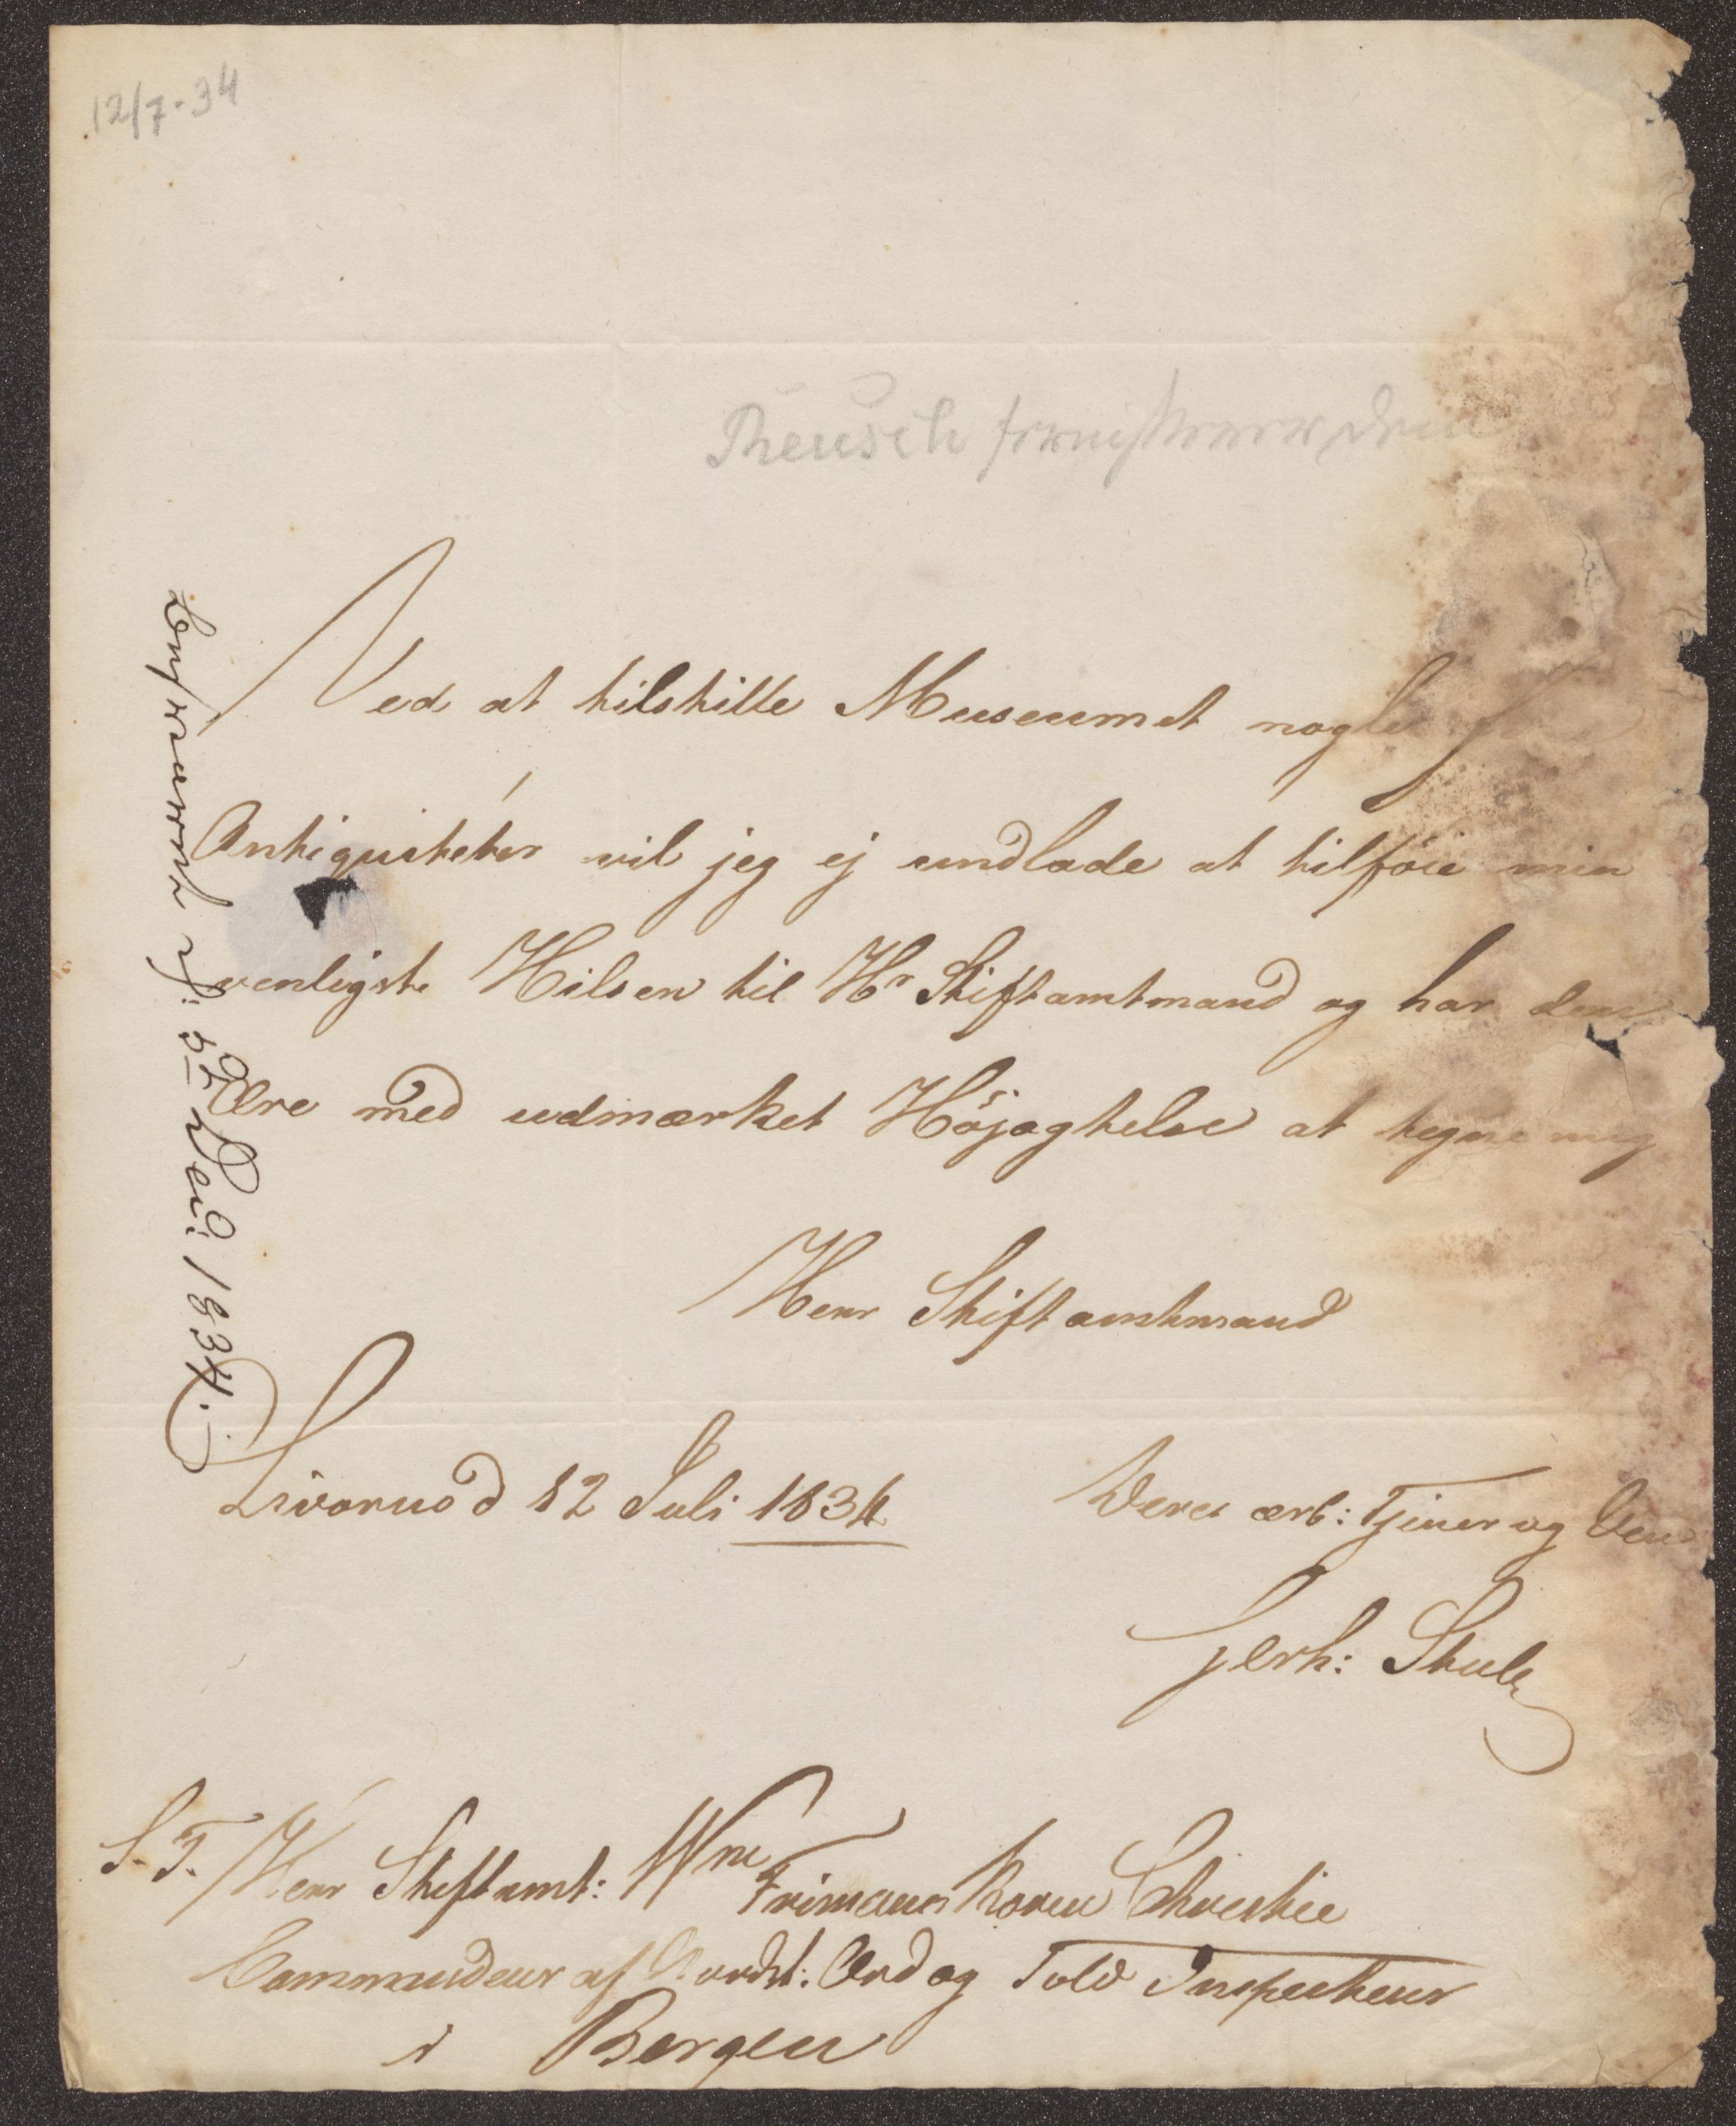 12/7-34
Reusch
Ved at tilstille Museumet nogle
Antiquiteter vil jeg ej undlade at tilföie min
venligste Hilsen til Hr Stiftamtmand og har den
Ære med udmærket Höjagtelse at tegne mig
Herr Stiftamtmand
Livorno d 12 Juli 1834
Deres ærb: Tjener og Ven
Gerh: Stub
S. T. Herr Stiftamt: Wm Frimann Koren Christie
Commandeur af Nordst: Ord og Told Inspecteur
i Bergen
Besvaret d: 5t Dec: 1834.